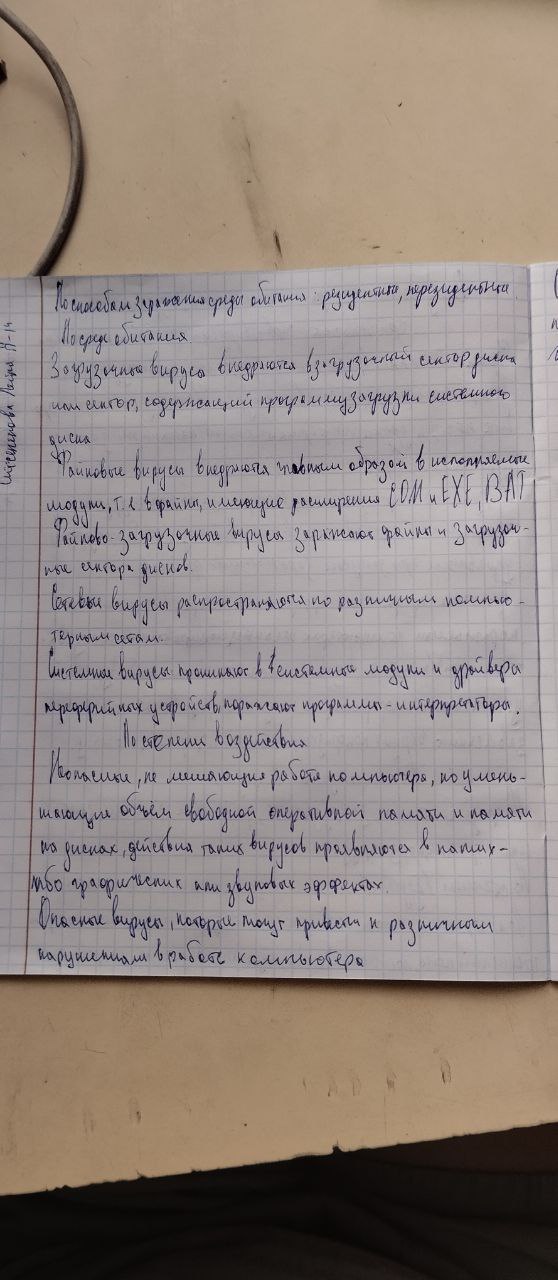 По способам заражения среды обитания: резидентные, нерезидентные
По среде обитания
Загрузочные вирусы внедряются в загрузочный сектор диска
или сектор, содержащий программу загрузки системного
диска
Файловые вирусы внедряются главным образом в исполняемые
модули, т.е. в файлы, имеющие расширения COM и EXE, BAT
Файлово-загрузочные вирусы заражают файлы и загрузоч-
ные сектора дисков.
Сетевые вирусы распространяются по различным компью-
терным сетям.
Системные вирусы проникают в системные модули и драйверы
переферийных устройств, поражают программы-интерпретаторы.
По степени воздействия
Неопасные, не мешающие работе компьютера, но умень-
шающие объём свободной оперативной памяти и памяти
на дисках, действия таких вирусов проявляются в каких-
либо графических или звуковых эффектах.
Опасные вирусы, которые могут привести к различным
нарушениям в работе компьютера